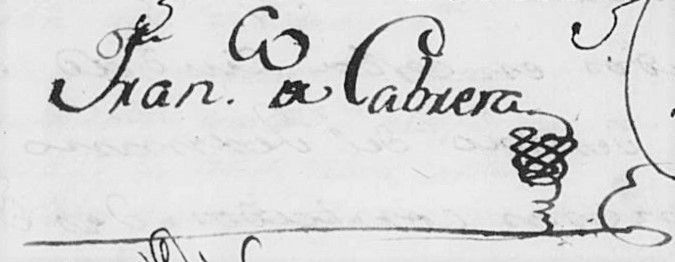 Fran.co de Cabrera